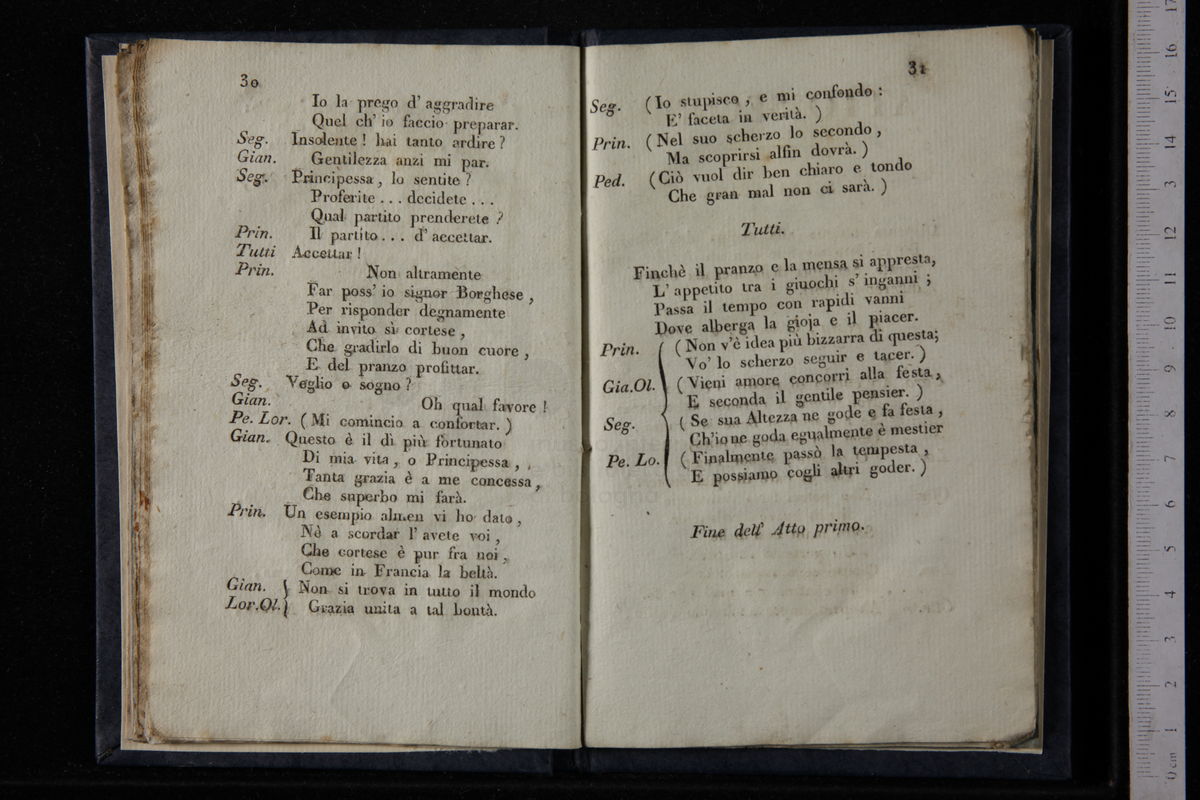 30
Io la prego d' aggradire
Quel ch' io faccio preparar.
Seg. Insolente ! hai tanto ardire ?
Gian. Gentilezza anzi mi par.
Seg. Principessa, lo sentite ?
Proferite . . . decidete . . .
Qual partito prenderete ?
Prin. Il partito . . . d' accettar.
Tutti Accettar !
Prin. Non altramente
Far poss' io signor Borghese ,
Per risponder degnamente
Ad invito sì cortese ,
Che gradirlo di buon cuore ,
E del pranzo profittar.
Seg. Veglio o sogno ?
Gian. Oh qual favore !
Pe. Lor. ( Mi comincio a confortar. )
Gian. Questo è il dì più fortunato
Di mia vita , o Principessa ,
Tanta grazia è a me concessa ,
Che superbo mi farà.
Prin. Un esempio almen vi ho dato ,
Nè a scordar l' avete voi ,
Che cortese è pur fra noi ,
Come in Francia la beltà.
Gian. } Non si trova in tutto il mondo
Lor.Ol. } Grazia unita a tal bontà.
31
Seg. (Io stupisco , e mi confondo :
E' faceta in verità. )
Prin. (Nel suo scherzo lo secondo ,
Ma scoprirsi alfin dovrà. )
Ped. (Ciò vuol dir ben chiaro e tondo
Che gran mal non ci sarà. )
Tutti.
Finchè il pranzo e la mensa si appresta,
L' appetito tra i giuochi s' inganni ;
Passa il tempo con rapidi vanni
Dove alberga la gioja e il piacer.
Prin. (Non v'è idea più bizzarra di questa;
Vo' lo scherzo seguir e tacer. )
Gia.Ol. (Vieni amore concorri alla festa,
E seconda il gentile pensier. )
Seg. ( Se sua Altezza ne gode e fa festa ,
Ch'io ne goda egualmente è mestier
Pe. Lo. (Finalmente passò la tempesta ,
E possiamo cogli altri goder. )
Fine dell' Atto primo.
0 cm 1 2 3 4 5 6 7 8 9 10 11 12 13 14 15 16 17